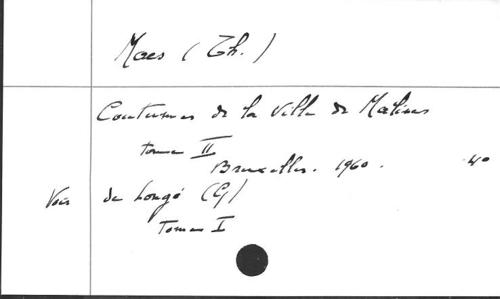 Maes (Th.)
Coutumes de la Ville de Malines
tome II
Bruxelles. 1960. 40
Voir de Longé (G)
Tome I